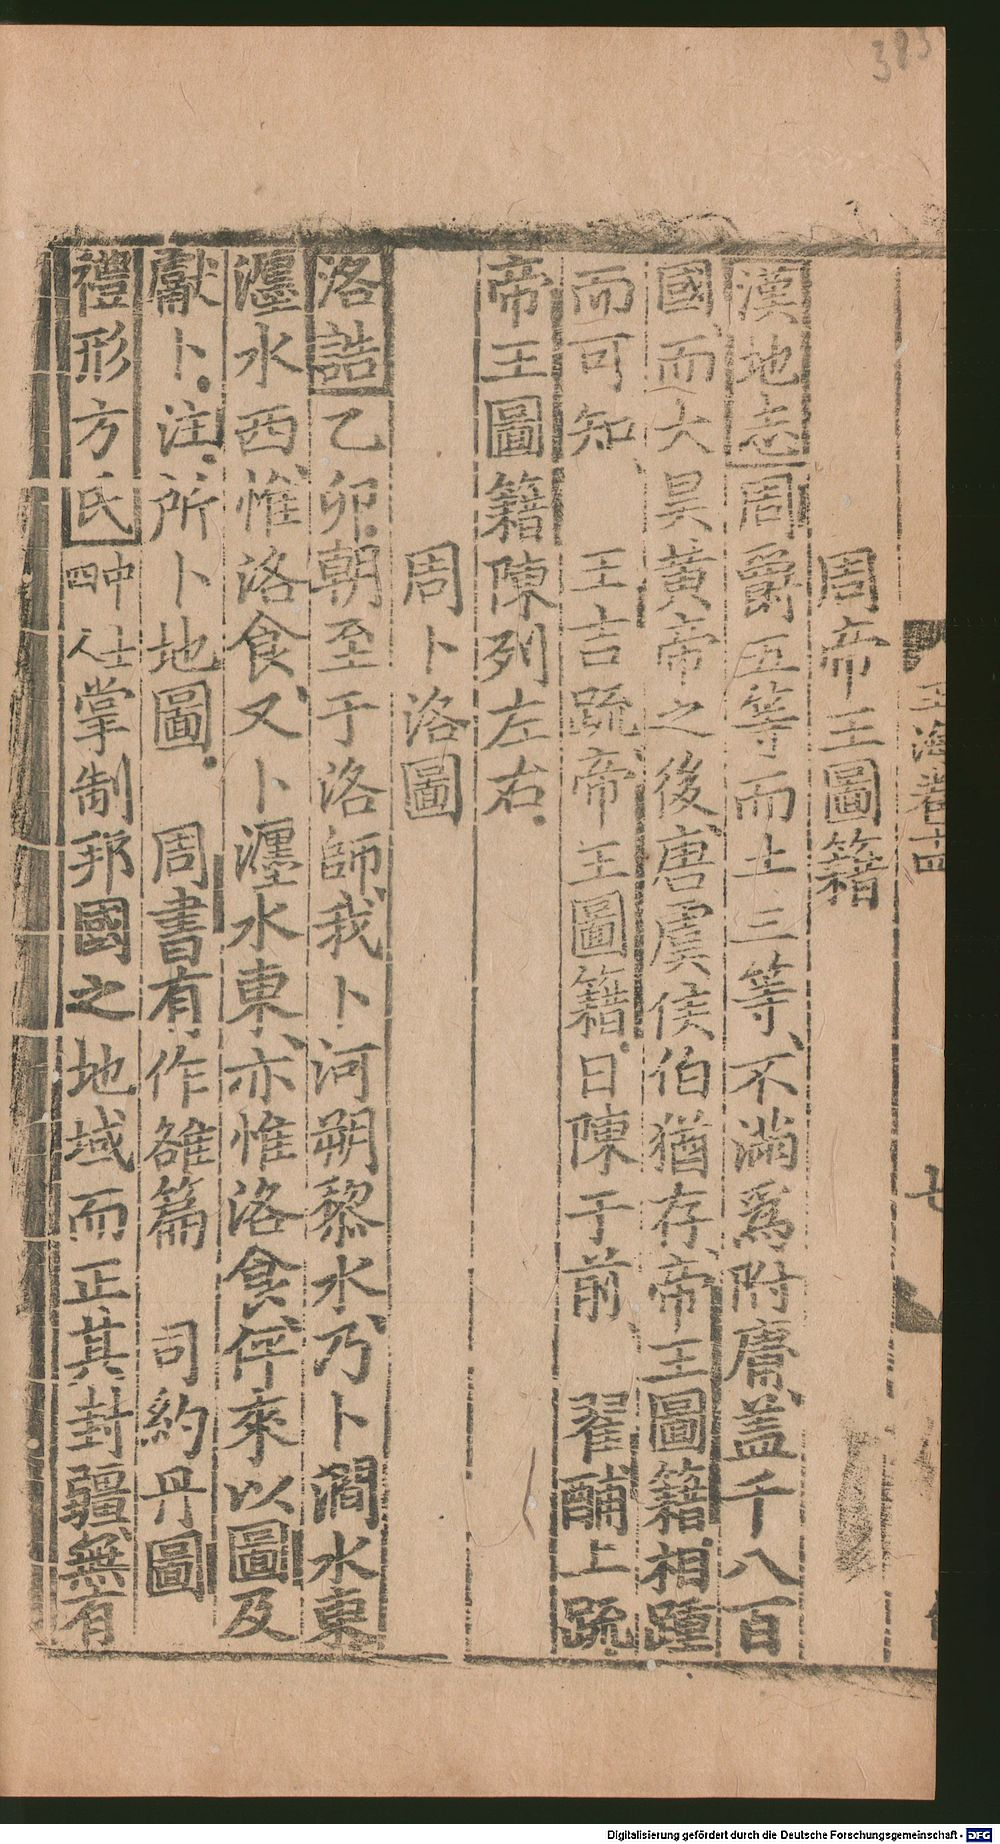 玉海卷十四
七
周帝王圖籍
漢地志周爵五等而土三等、不滿爲附庸、蓋千八百
國、而大昊黃帝之後、唐虞侯伯猶存、帝王圖籍相踵
而可知、王吉疏、帝王圖籍日陳于前 翟酺上疏
帝王圖籍陳列左右
周卜洛圖
洛誥乙卯朝至于洛師、我卜河朔黎水、乃卜澗水東
瀍水西、惟洛食、又卜瀍水東、亦惟洛食、伻來以圖及
獻卜注所卜地圖 周書有作雒篇 司約丹圖
禮形方氏中士四人掌制邦國之地域而正其封疆無有
Digitalisierung gefördert durch die Deutsche Forschungsgemeinschaft - DFG